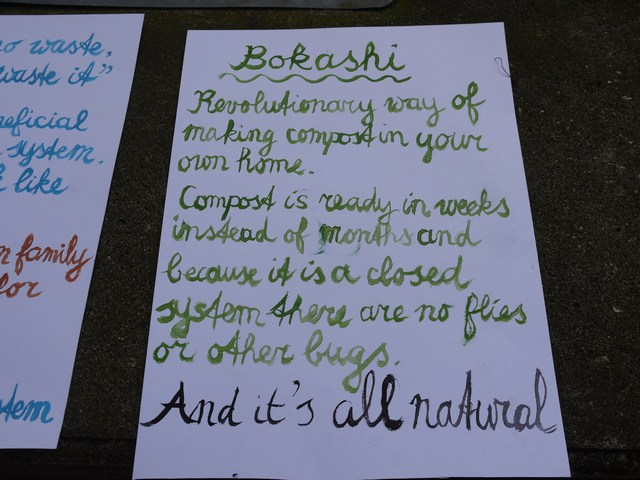 no waste,
waste it"
system.
like
family
for
Bokashi
Revolutionary way of
making compost in your
own home.
Compost is ready in weeks
instead of months and
because it is a closed
system there are no flies
or other bugs.
And it's all natural